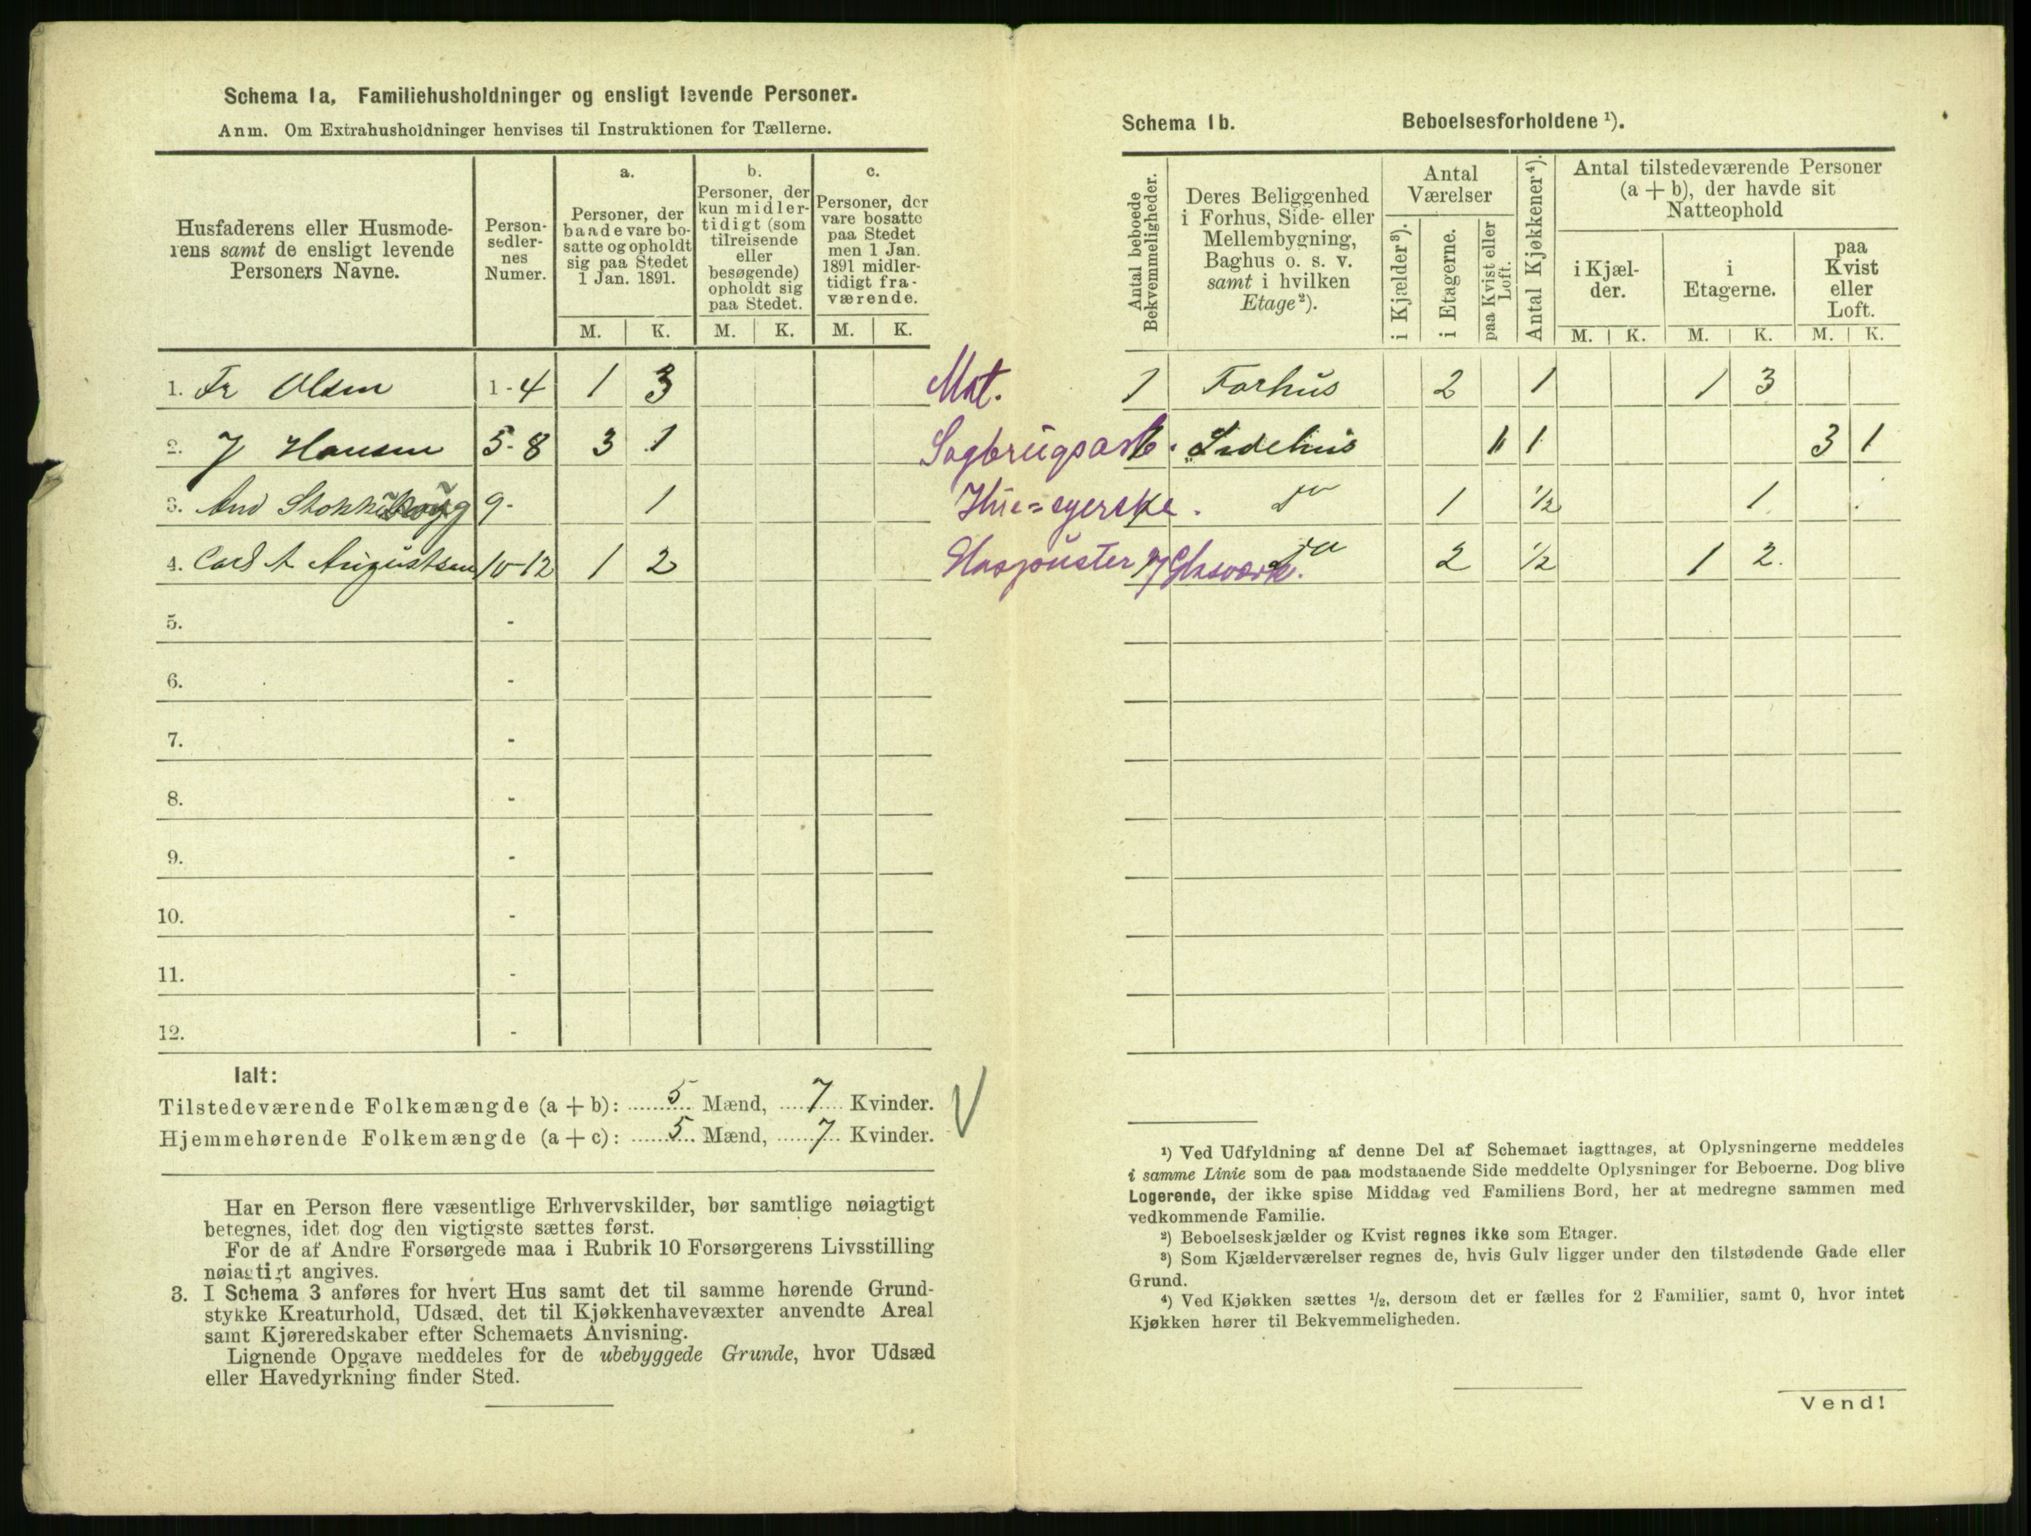 Schema 1a. Familiehusholdninger og ensligt levende Personer.
Anm. Om Extrahusholdninger henvises til Instruktionen for Tællerne.
Husfaderens eller Husmoderens samt de ensligt levende Personers Navne.
Personsedlernes Numer.
a. Personer, der baade vare bosatte og opholdt sig paa Stedet 1 Jan. 1891.
b. Personer, der kun midlertidigt (som tilreisende eller besøgende) opholdt sig paa Stedet.
c. Personer, der vare bosatte paa Stedet men 1 Jan. 1891 midlertidigt fraværende.
M. K. M. K. M. K.
1. Fr Olsen 1-4 1 3 Mat.
2. J Hansen 5-8 3 1 Sagbrugsarb.
3. And 9- 1
4. Carl A Augustsen 10-12 1 2 Glasværk.
5. -
6. -
7. -
8. -
9. -
10. -
11. -
12. -
Ialt:
Tilstedeværende Folkemængde (a + b): 5 Mænd, 7 Kvinder.
Hjemmehørende Folkemængde (a + c): 5 Mænd, 7 Kvinder.
Har en Person flere væsentlige Erhvervskilder, bør samtlige nøiagtigt
betegnes, idet dog den vigtigste sættes først.
For de af Andre Forsørgede maa i Rubrik 10 Forsørgerens Livsstilling
nøiagtigt angives.
3. I Schema 3 anføres for hvert Hus samt det til samme hørende Grund-
stykke Kreaturhold, Udsæd, det til Kjøkkenhavevæxter anvendte Areal
samt Kjøreredskaber efter Schemaets Anvisning.
Lignende Opgave meddeles for de ubebyggede Grunde, hvor Udsæd
eller Havedyrkning finder Sted.
Schema 1b. Beboelsesforholdene ¹).
Antal beboede Bekvemmeligheder.
Deres Beliggenhed i Forhus, Side- eller Mellembygning, Baghus o. s. v. samt i hvilken Etage ²).
Antal Værelser
i Kjælder ³).
i Etagerne.
paa Kvist eller Loft.
Antal Kjøkkener ⁴).
Antal tilstedeværende Personer (a + b), der havde sit Natteophold
i Kjælder.
i Etagerne.
paa Kvist eller Loft.
M. K. M. K. M. K.
1 Forhus 2 1 1 3
1 Sidehus 1 1 3 1
do 1 ½ 1
do 2 ½ 1 2
¹) Ved Udfyldning af denne Del af Schemaet iagttages, at Oplysningerne meddeles
i samme Linie som de paa modstaaende Side meddelte Oplysninger for Beboerne. Dog blive
Logerende, der ikke spise Middag ved Familiens Bord, her at medregne sammen med
vedkommende Familie.
²) Beboelseskjælder og Kvist regnes ikke som Etager.
³) Som Kjælderværelser regnes de, hvis Gulv ligger under den tilstødende Gade eller
Grund.
⁴) Ved Kjøkken sættes ½, dersom det er fælles for 2 Familier, samt 0, hvor intet
Kjøkken hører til Bekvemmeligheden.
Vend!